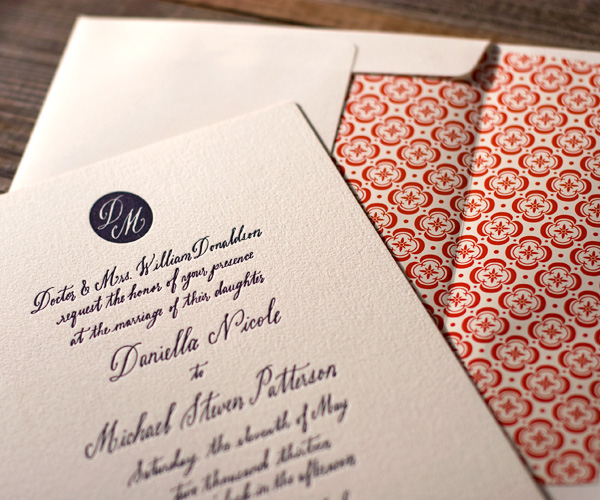 DM
Doctor & Mrs. William Donaldson
request the honor of your presence
at the marriage of their daughter
Daniella Nicole
to
Michael Steven Patterson
Saturday, the eleventh of May
two thousand thirteen
o'clock in the afternoon